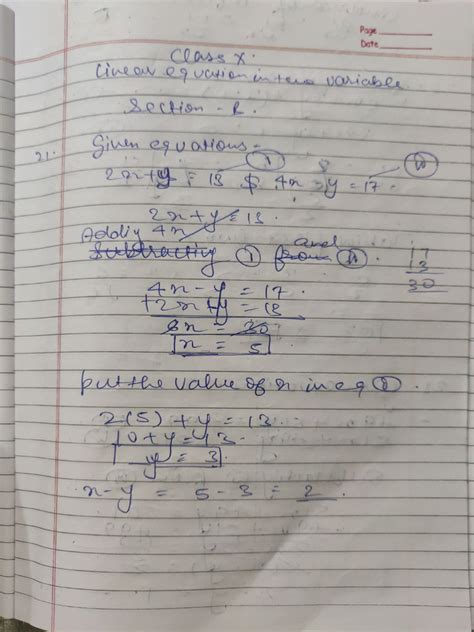 Page
Date
Class X.
Linear equation in two variable
Section - B.
21. Given equations -
2x+y = 13 $ 4x - y = 17.
2x + y = 13.
4x
Adding
Subtracting ① and from ②.
17
13
30
4x - y = 17
+2x+y = 13
6x = 30
x = 5
put the value of x in eq ①.
2(5) + y = 13
10+y = 13.
y = 3.
x - y = 5 - 3 = 2.